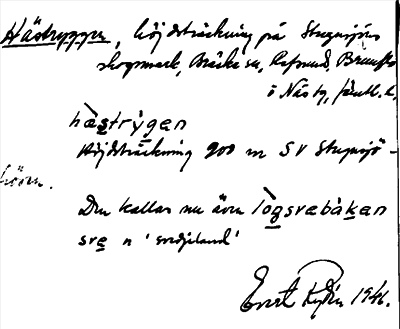 Hästryggen, höjdsträckning på Stugusjöns
skogsmark, Bräcke sn, Refsund, Brunflo
i Näs tg, Jämtl. l.
hästrỳgen
Höjdsträckning 900 m SV Stugusjö-
Den kallas nu även lògsvebàken
sve n 'svedjeland'
1946.